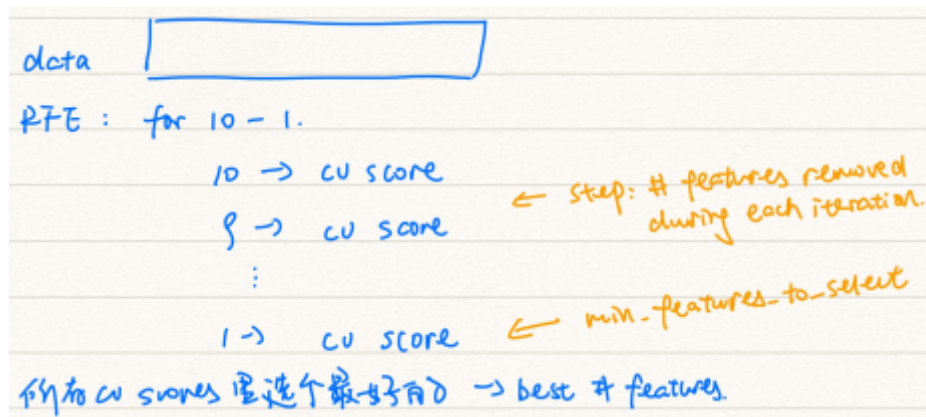 data
RFE : for 10 - 1.
10 → cv score
← step: # features removed during each iteration.
9 → cv score
⋮
1 → cv score
← min_features_to_select
所有 cv scores 里选个最好的 → best # features.